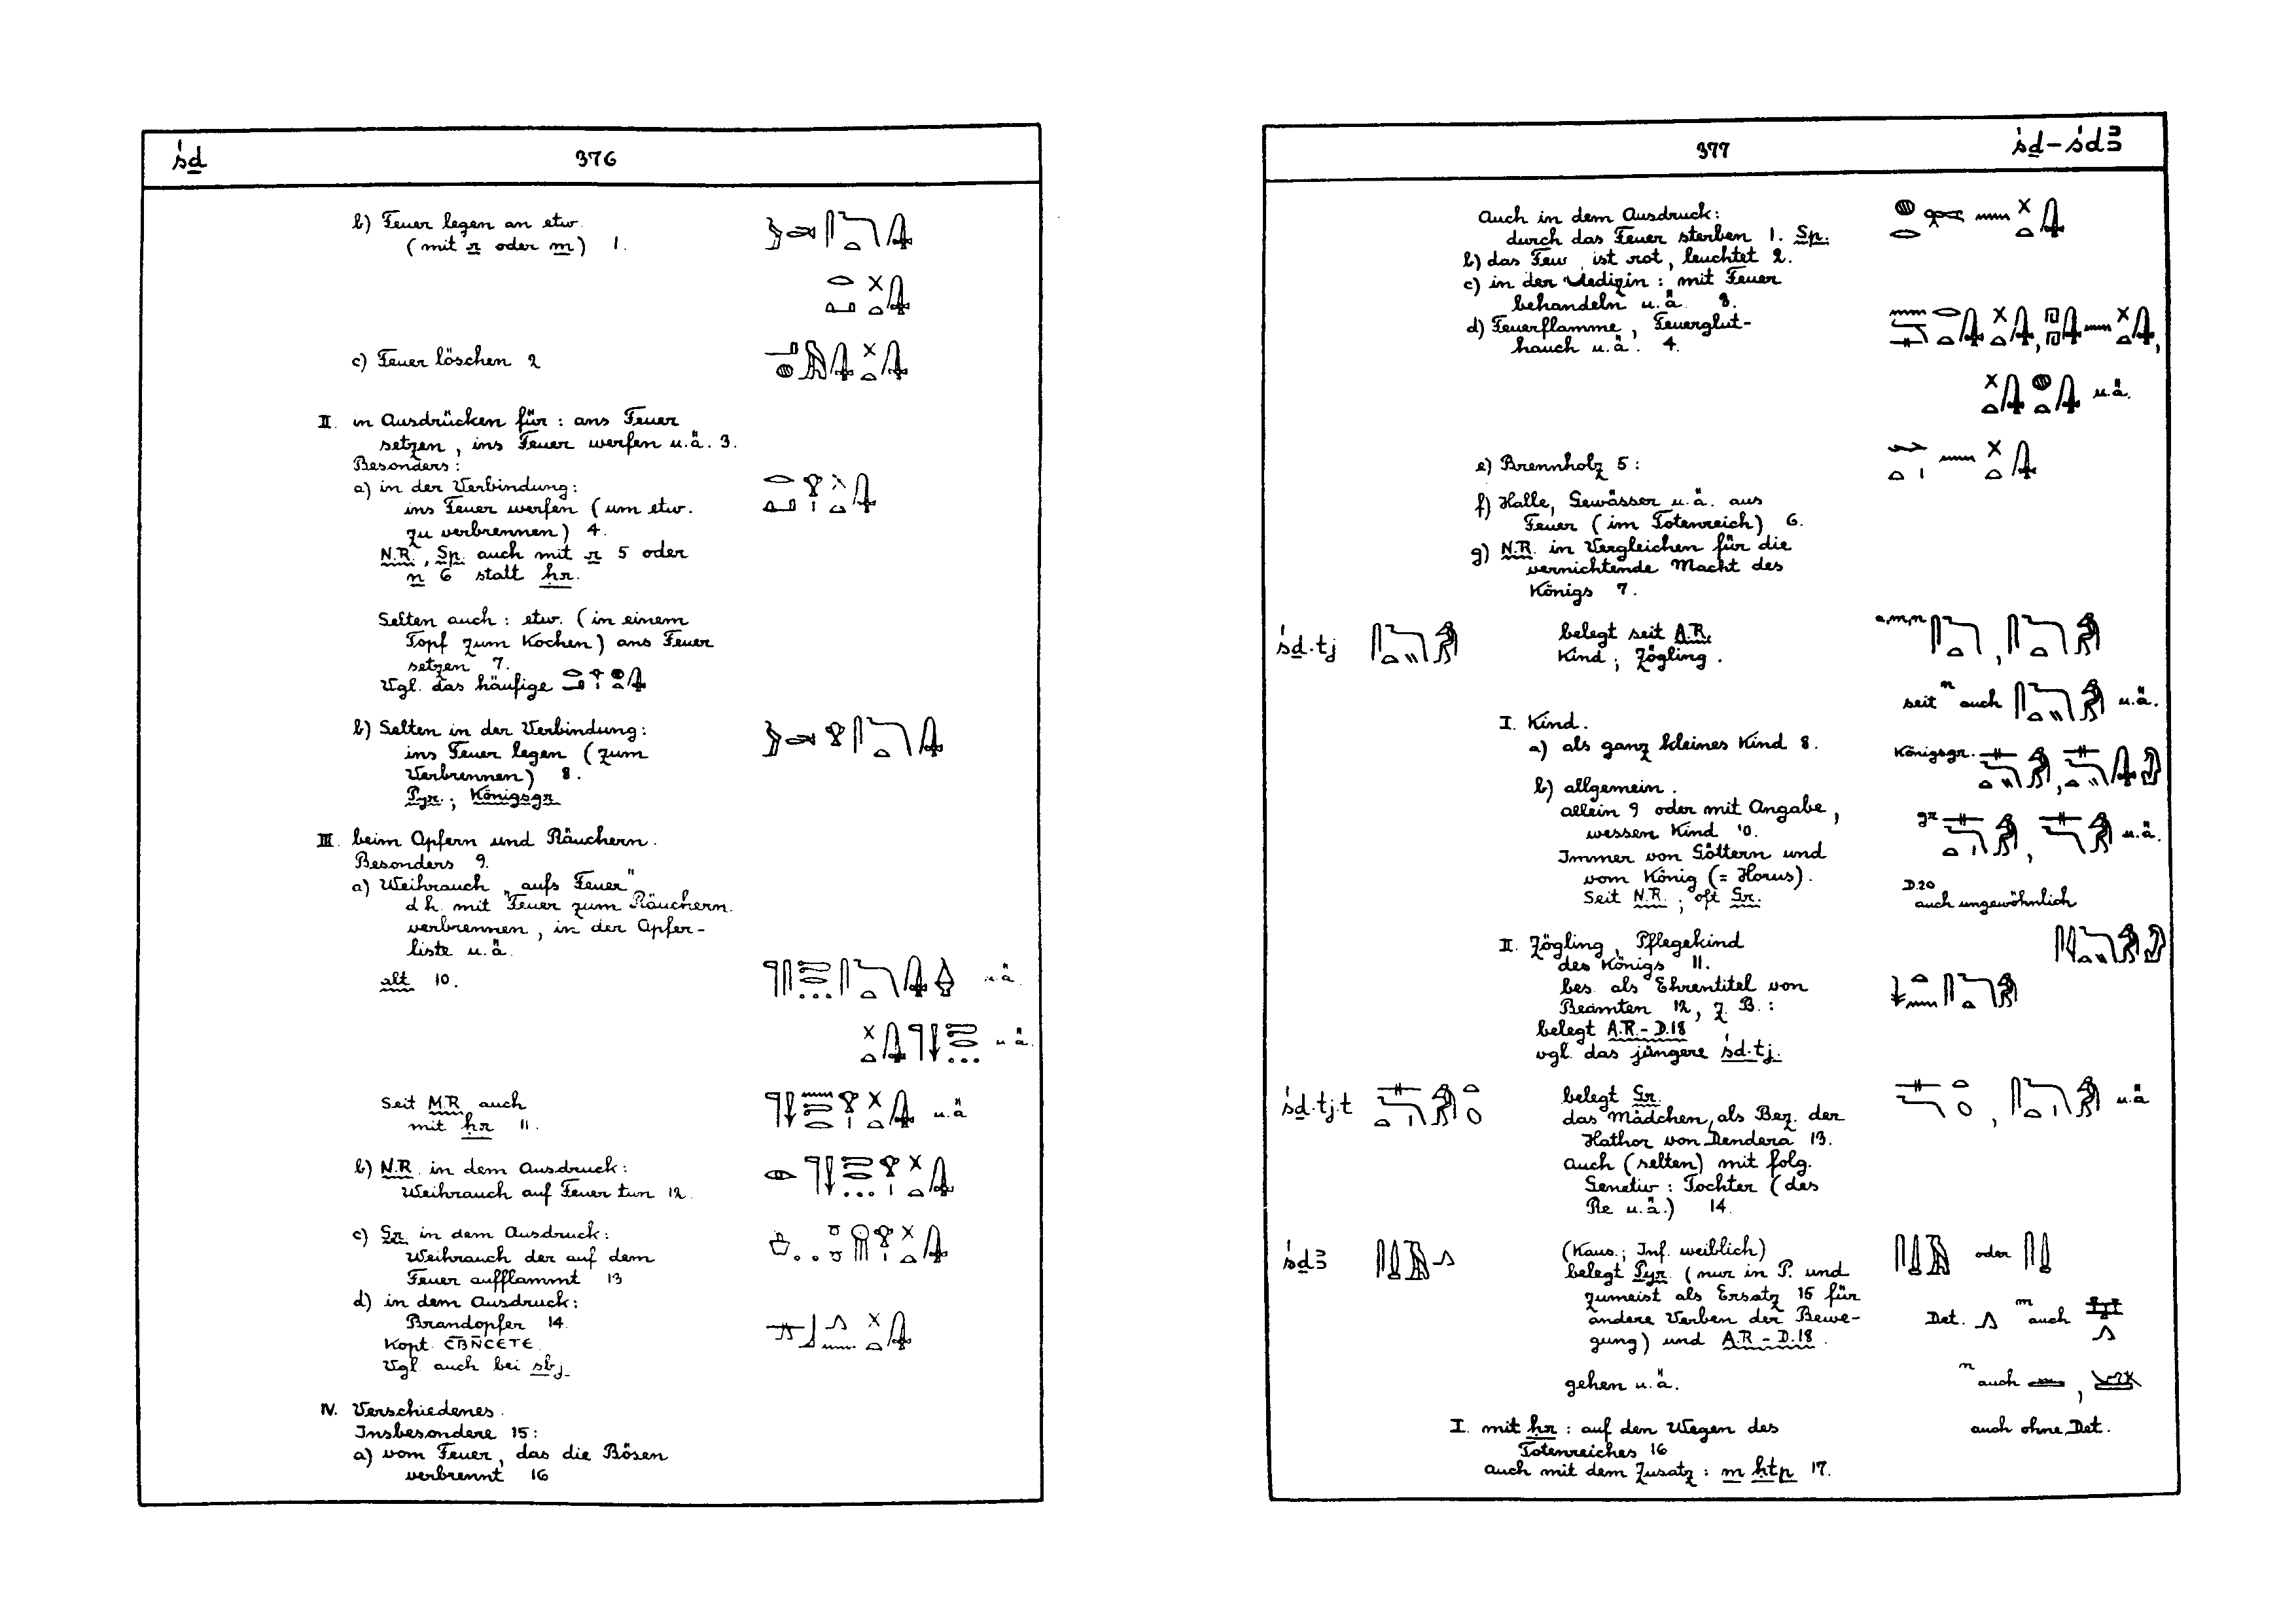 śḏ 376
b) Feuer legen an etw.
(mit r oder m) 1.
c) Feuer löschen 2
II. in Ausdrücken für : ans Feuer
setzen, ins Feuer werfen u.ä. 3.
Besonders:
a) in der Verbindung:
ins Feuer werfen (um etw.
zu verbrennen) 4.
N.R., Sp. auch mit r 5 oder
n 6 statt ḥr.
Selten auch : etw. (in einem
Topf zum Kochen) ans Feuer
setzen 7.
Vgl. das häufige
b) Selten in der Verbindung:
ins Feuer legen (zum
Verbrennen) 8.
Pyr.; Königsgr.
III. beim Opfern und Räuchern.
Besonders 9.
a) Weihrauch „aufs Feuer"
d.h. mit Feuer zum Räuchern
verbrennen, in der Opfer-
liste u.ä.
alt 10. u.ä.
u.ä.
Seit M.R. auch
mit ḥr 11. u.ä
b) N.R. in dem Ausdruck:
Weihrauch auf Feuer tun 12.
c) Gr. in dem Ausdruck:
Weihrauch der auf dem
Feuer aufflammt 13
d) in dem Ausdruck:
Brandopfer 14.
Kopt. C̄B̄N̄CETE
Vgl. auch bei sbj.
IV. Verschiedenes.
Insbesondere 15:
a) vom Feuer, das die Bösen
verbrennt 16
377 śḏ-śdꜣ
Auch in dem Ausdruck:
durch das Feuer sterben 1. Sp.
b) das Feu ist rot, leuchtet 2.
c) in der Medizin : mit Feuer
behandeln u.ä. 3.
d) Feuerflamme, Feuerglut-
hauch u.ä. 4.
u.ä.
e) Brennholz 5 :
f) Halle, Gewässer u.ä. aus
Feuer (im Totenreich) 6.
g) N.R. in Vergleichen für die
vernichtende Macht des
Königs 7.
śḏ.tj belegt seit A.R. a,m,n
Kind; Zögling.
seit n auch u.ä.
I. Kind.
a) als ganz kleines Kind 8. Königsgr.
b) allgemein.
allein 9 oder mit Angabe,
wessen Kind 10. gr u.ä.
Immer von Göttern und
vom König (= Horus).
Seit N.R.; oft Gr.
D.20
auch ungewöhnlich
II. Zögling, Pflegekind
des Königs 11.
bes. als Ehrentitel von
Beamten 12, z.B. :
belegt A.R.-D.18
vgl. das jüngere śd.tj.
śḏ.tj.t belegt Gr. u.ä
das Mädchen, als Bez. der
Hathor von Dendera 13.
auch (selten) mit folg.
Genetiv : Tochter (des
Re u.ä.) 14.
śḏꜣ (Kaus.; Inf. weiblich) oder
belegt Pyr. (nur in P. und
zumeist als Ersatz 15 für
andere Verben der Bewe- Det. m auch
gung) und A.R.-D.18.
gehen u.ä. n auch
I. mit ḥr : auf den Wegen des auch ohne Det.
Totenreiches 16
auch mit dem Zusatz : m ḥtp 17.